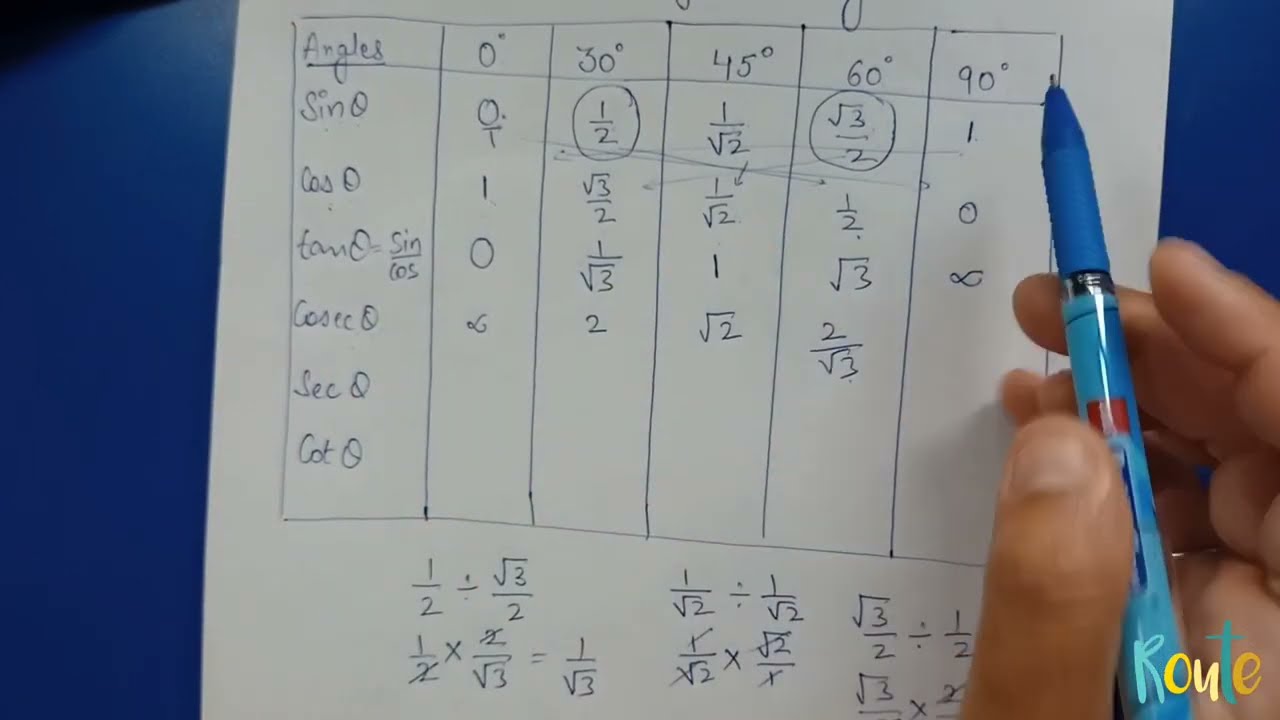 Angles 0° 30° 45° 60° 90°
Sinθ 0/1 1/2 1/√2 √3/2 1
Cosθ 1 √3/2 1/√2 1/2 0
tanθ=sin/cos 0 1/√3 1 √3 ∞
Cosecθ ∞ 2 √2 2/√3
Secθ
Cotθ
1/2 ÷ √3/2 1/√2 ÷ 1/√2 √3/2 ÷ 1/2
1/2 × 2/√3 = 1/√3 1/√2 × √2/1 √3 × 2
Route